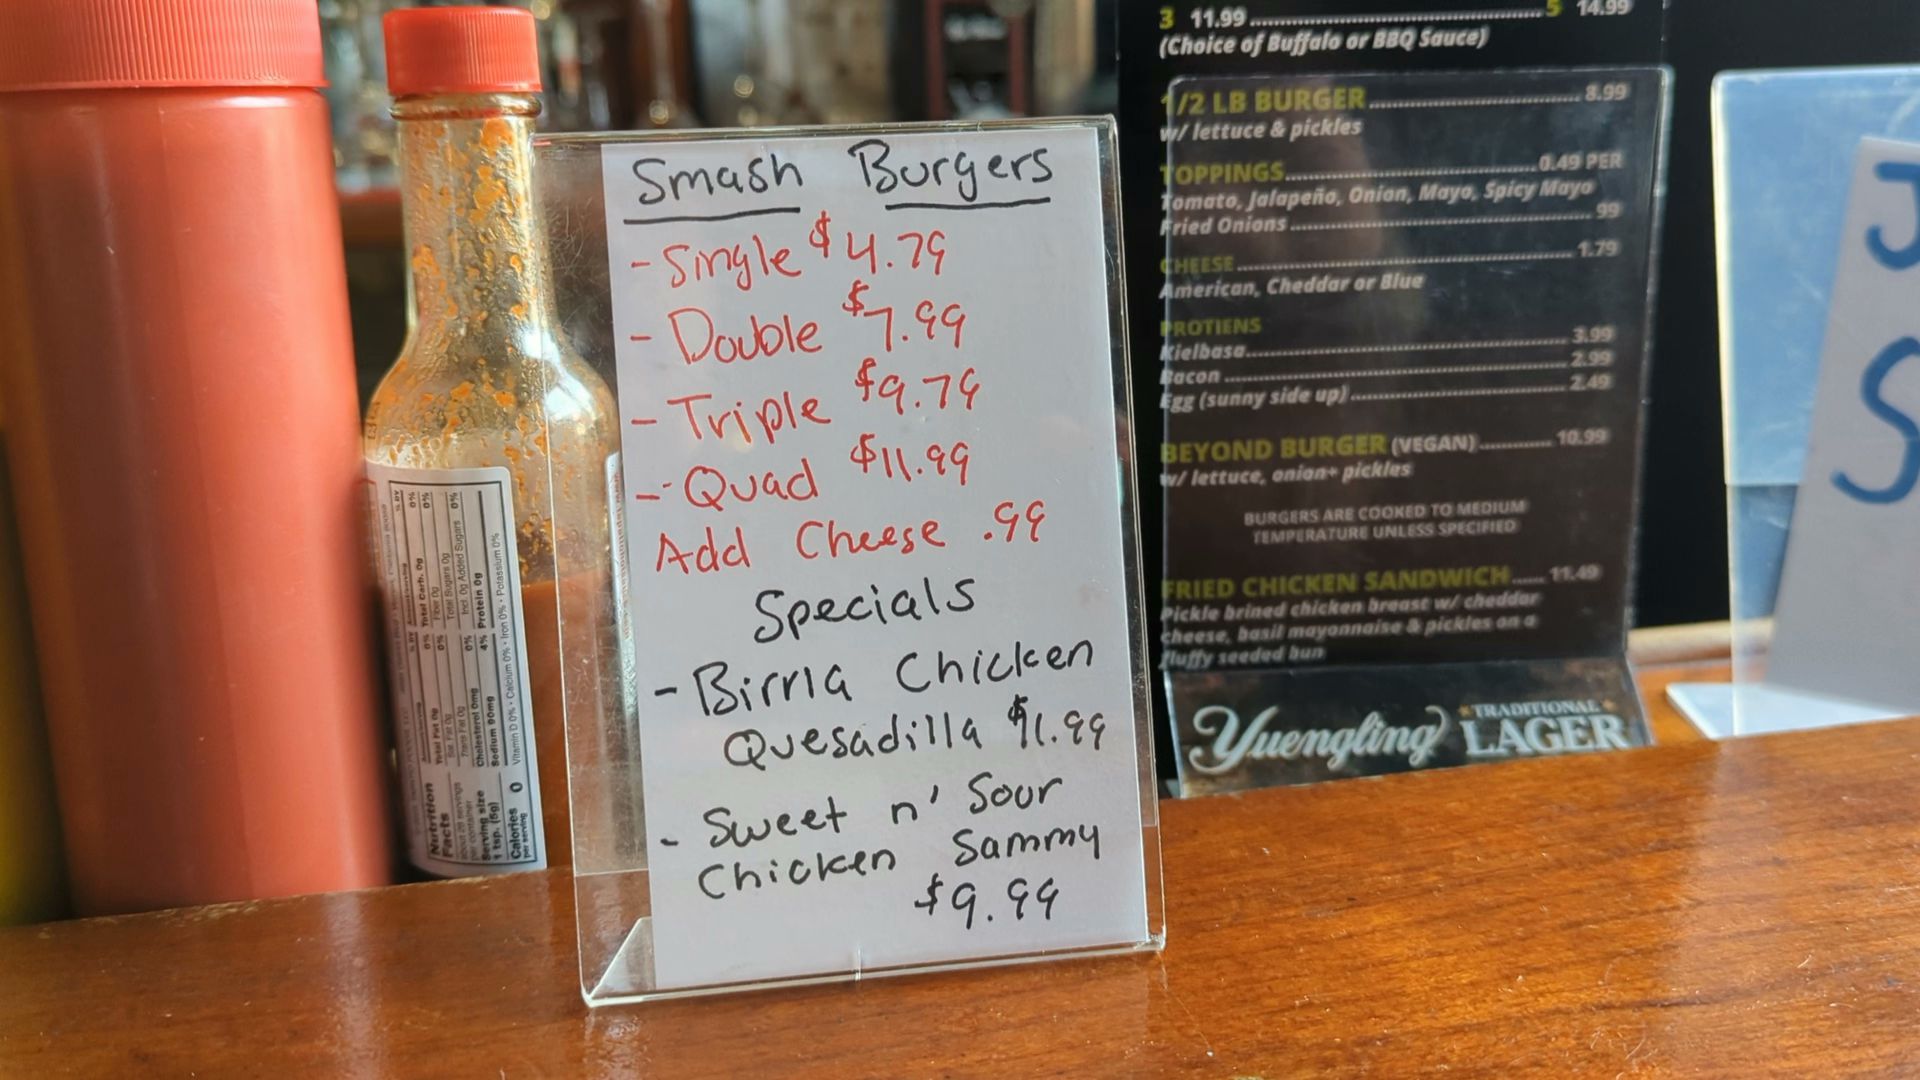 Smash Burgers
- Single $4.79
- Double $7.99
- Triple $9.79
- Quad $11.99
Add Cheese .99
Specials
- Birria Chicken
Quesadilla $11.99
- Sweet n' Sour
Chicken Sammy
$9.99
3 11.99 5 14.99
(Choice of Buffalo or BBQ Sauce)
1/2 LB BURGER 8.99
w/ lettuce & pickles
TOPPINGS 0.49 PER
Tomato, Jalapeño, Onion, Mayo, Spicy Mayo
Fried Onions .99
CHEESE 1.79
American, Cheddar or Blue
PROTIENS
Kielbasa 3.99
Bacon 2.99
Egg (sunny side up) 2.49
BEYOND BURGER (VEGAN) 10.99
w/ lettuce, onion+ pickles
BURGERS ARE COOKED TO MEDIUM
TEMPERATURE UNLESS SPECIFIED
FRIED CHICKEN SANDWICH 11.49
Pickle brined chicken breast w/ cheddar
cheese, basil mayonnaise & pickles on a
fluffy seeded bun
Yuengling TRADITIONAL
LAGER
J
S
Nutrition
Facts
about 28 servings
per container
Serving size
1 tsp. (5g)
Calories 0
per serving
Amount/serving % DV
Total Fat 0g 0%
Sat. Fat 0g 0%
Trans Fat 0g
Cholesterol 0mg 0%
Sodium 90mg 4%
Amount/serving % DV
Total Carb. 0g 0%
Fiber 0g 0%
Total Sugars 0g
Incl. 0g Added Sugars 0%
Protein 0g
Vitamin D 0% • Calcium 0% • Iron 0% • Potassium 0%